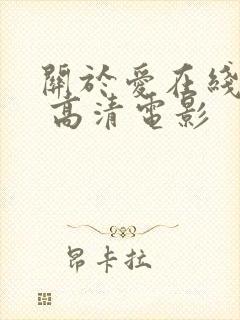 關於愛在綫
高清電影
昂卡拉